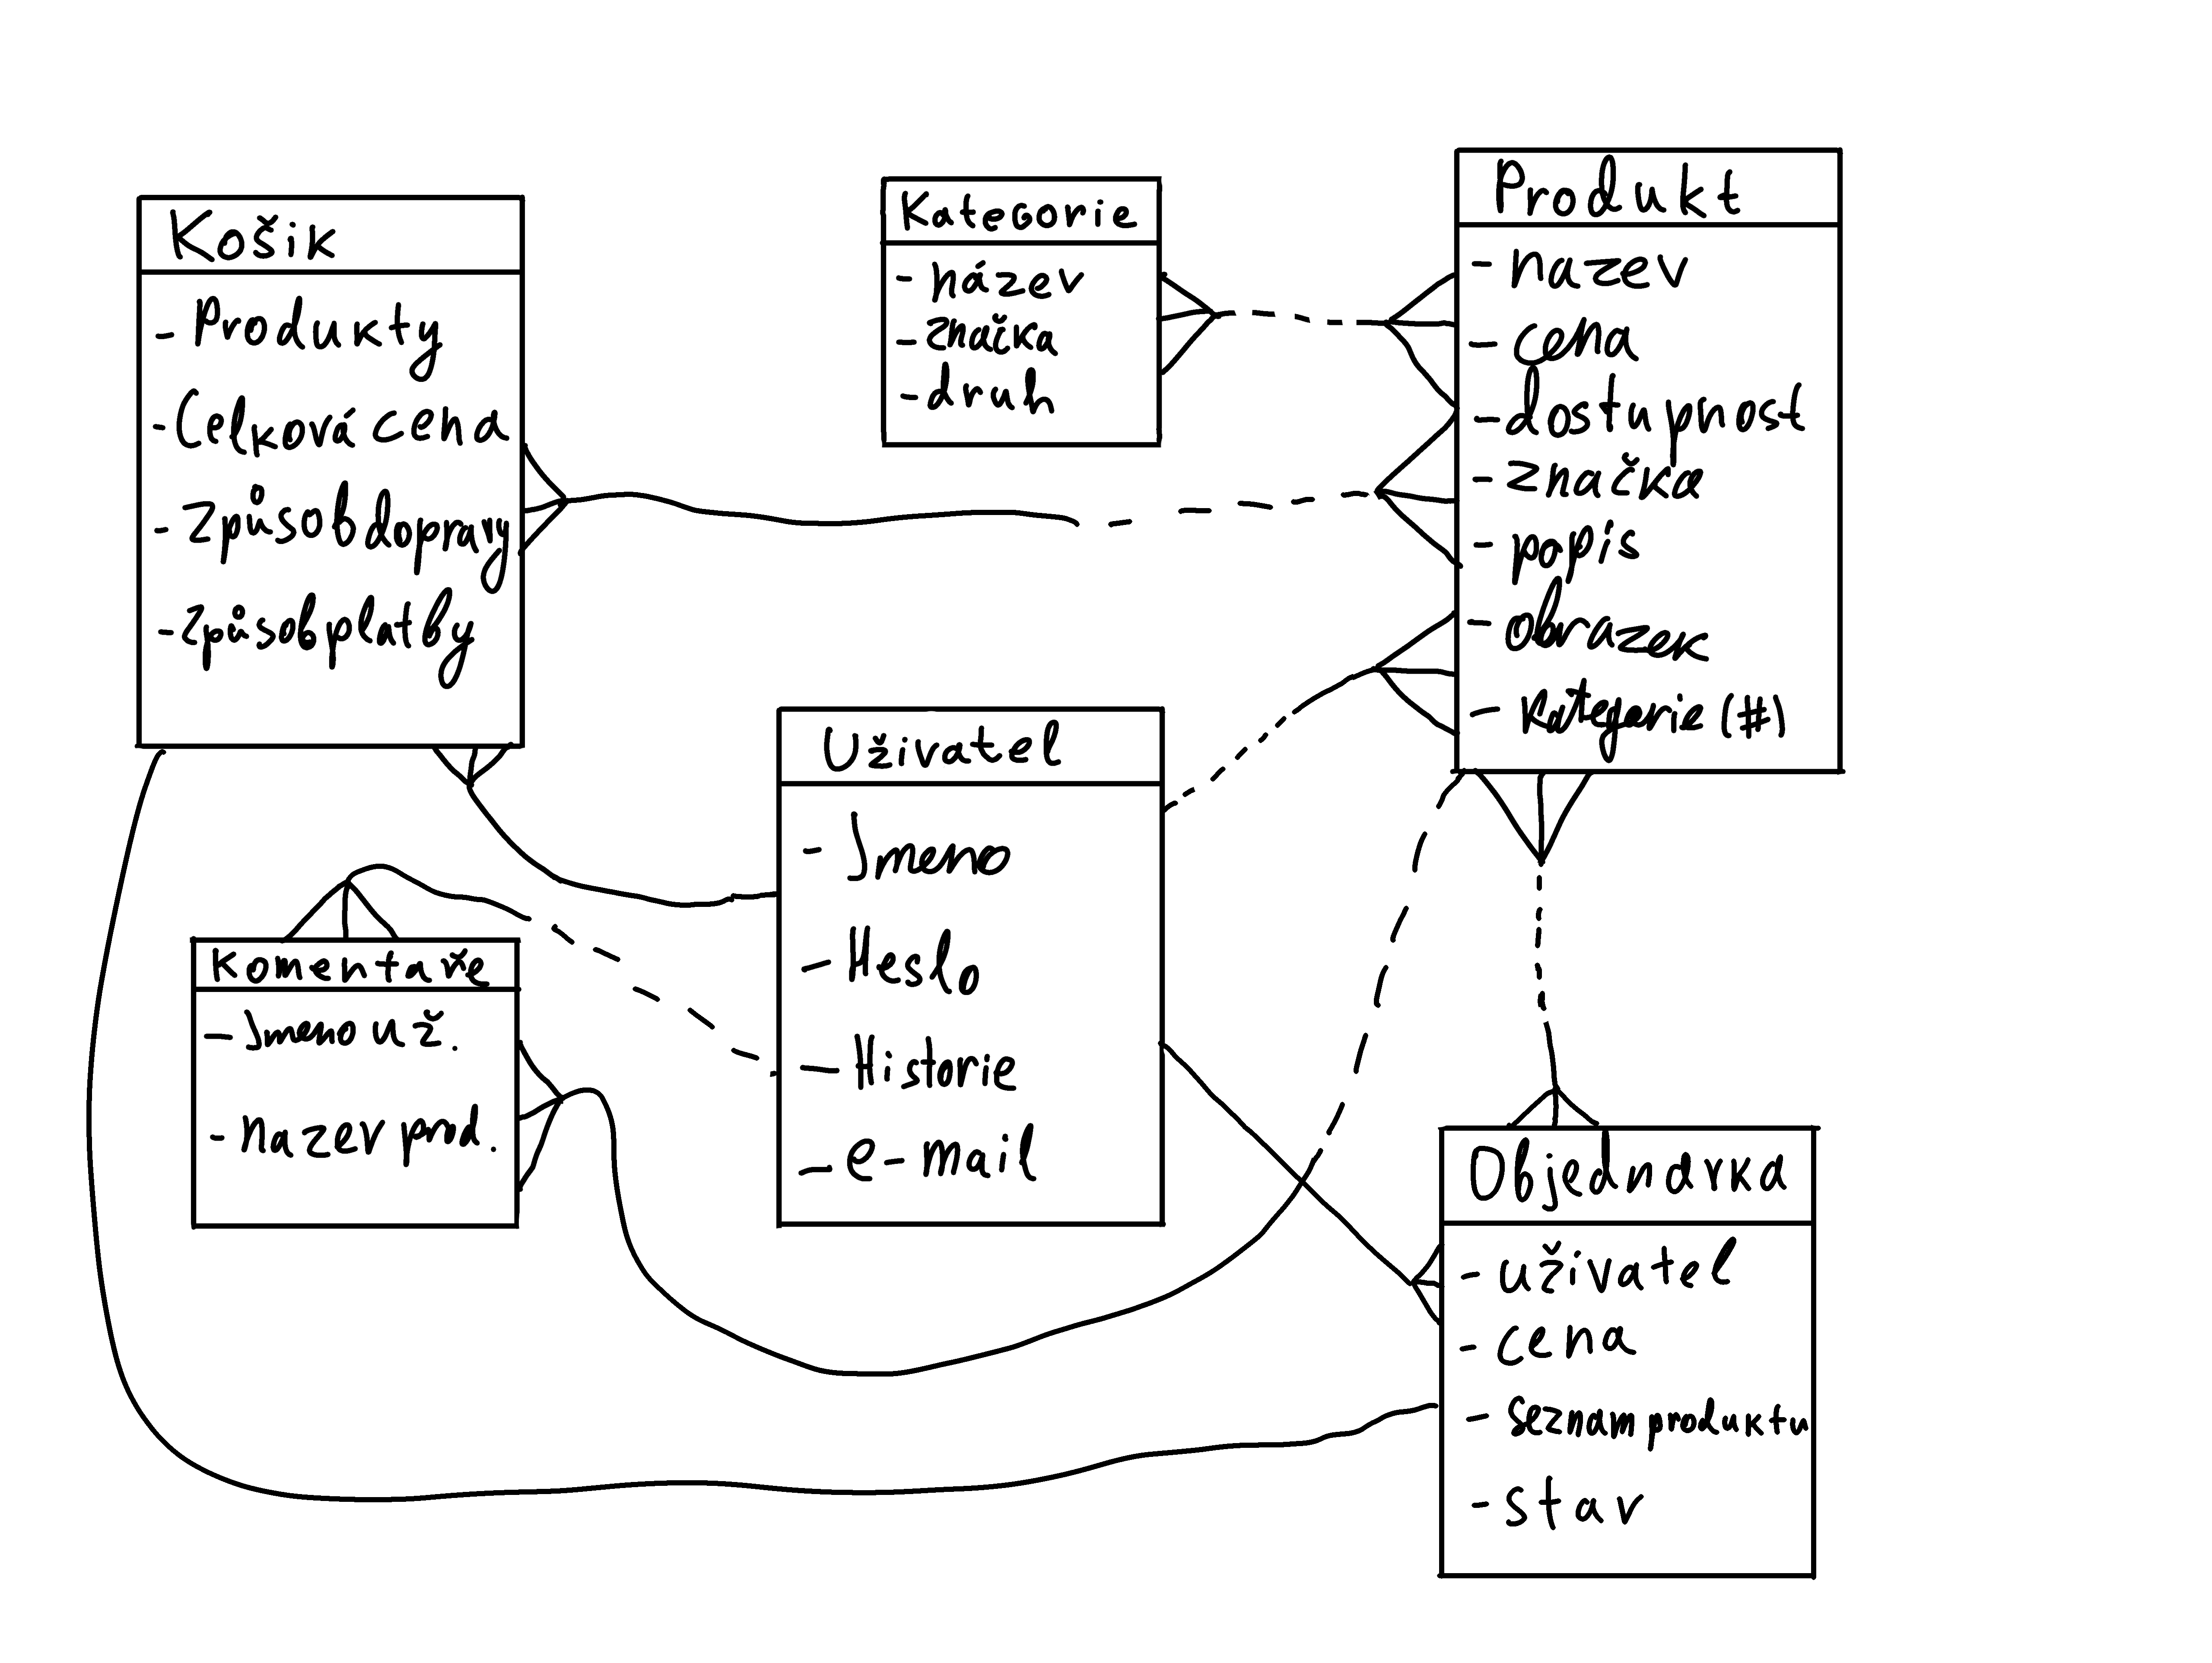 Košik
- Produkty
- Celková cena
- Způsob dopravy
- Způsob platby
Kategorie
- název
- značka
- druh
Produkt
- nazev
- cena
- dostupnost
- značka
- popis
- obrazek
- Kategorie (#)
Uživatel
- Jmeno
- Heslo
- Historie
- e-mail
Komentaře
- Jmeno už.
- nazev prod.
Objednavka
- uživatel
- cena
- seznam produktu
- stav